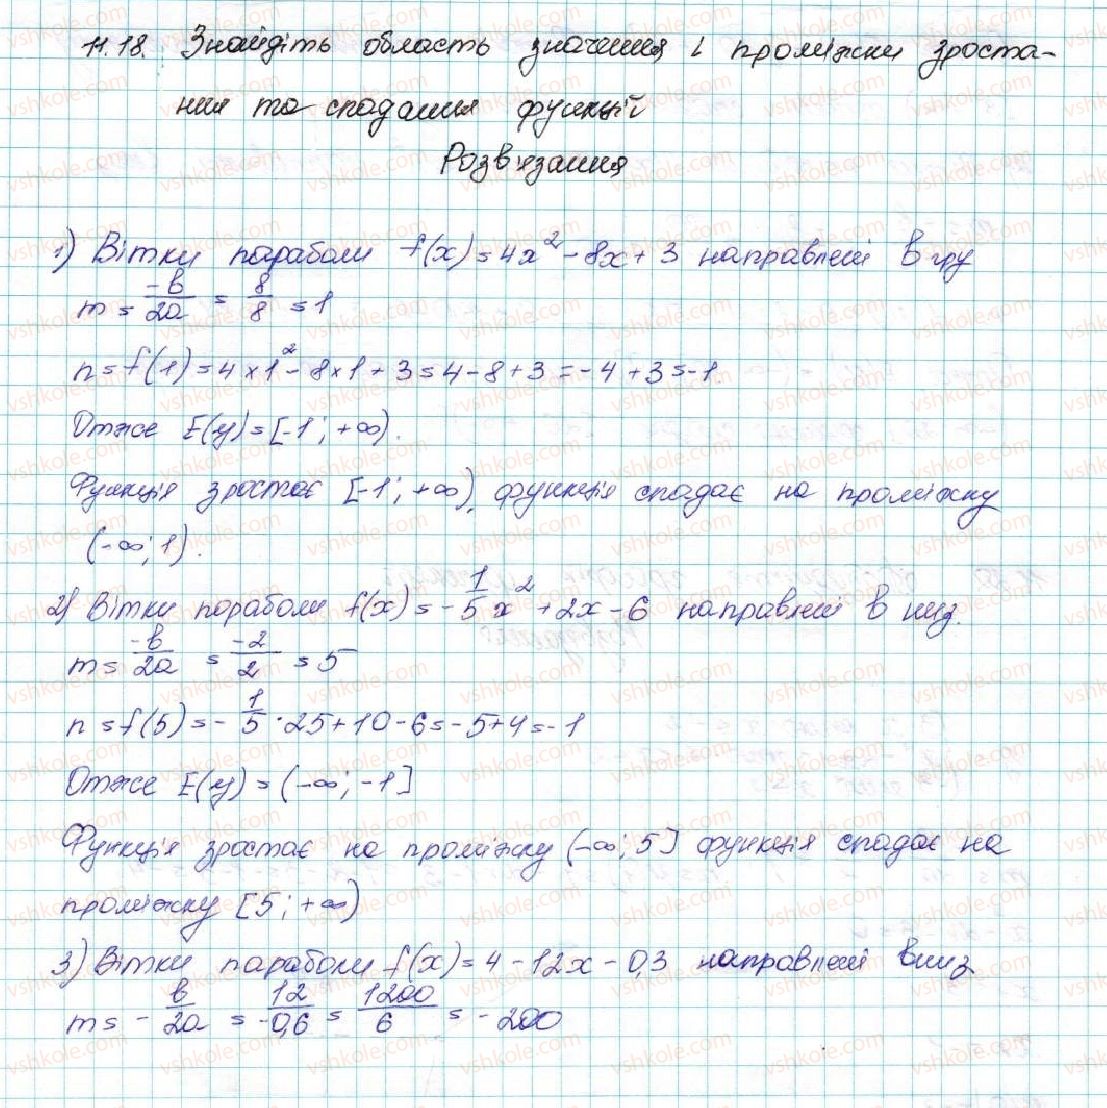 11.18. Знайдіть область значення і проміжки зроста-
ння та спадання функції
Розв'язання
1) Вітки параболи f(x) = 4x² - 8x + 3 направлені вгру
m = -b/2a = 8/8 = 1
n = f(1) = 4 × 1² - 8 × 1 + 3 = 4 - 8 + 3 = -4 + 3 = -1.
Отже E(y) = [-1; +∞).
Функція зростає [-1; +∞), функція спадає на проміжку
(-∞; 1).
2) Вітки параболи f(x) = -1/5 x² + 2x - 6 направлені в низ.
m = -b/2a = -2/2 = 5
n = f(5) = -1/5 · 25 + 10 - 6 = -5 + 4 = -1
Отже E(y) = (-∞; -1]
Функція зростає на проміжку (-∞; 5] функція спадає на
проміжку [5; +∞)
3) Вітки параболи f(x) = 4 - 12x - 0,3 направлені вниз
m = -b/2a = 12/-0,6 = 1200/6 = -200